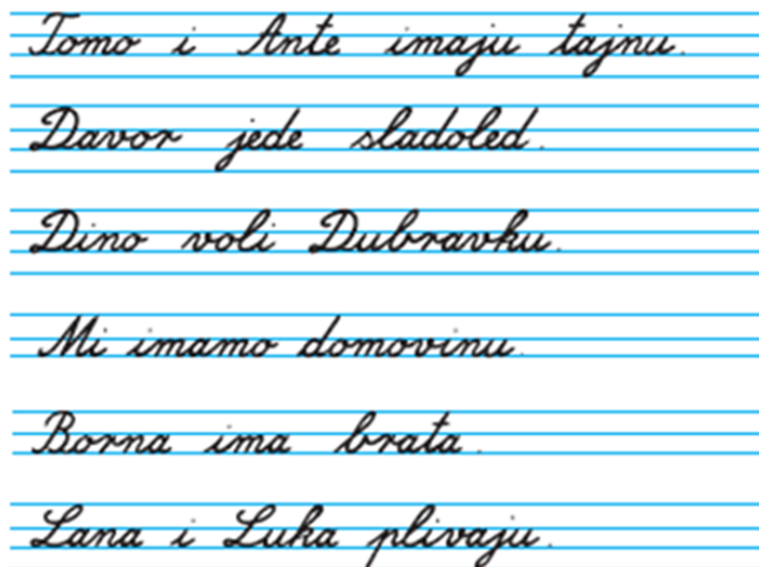 Tomo i Ante imaju tajnu.
Davor jede sladoled.
Dino voli Dubravku.
Mi imamo domovinu.
Borna ima brata.
Lana i Luka plivaju.